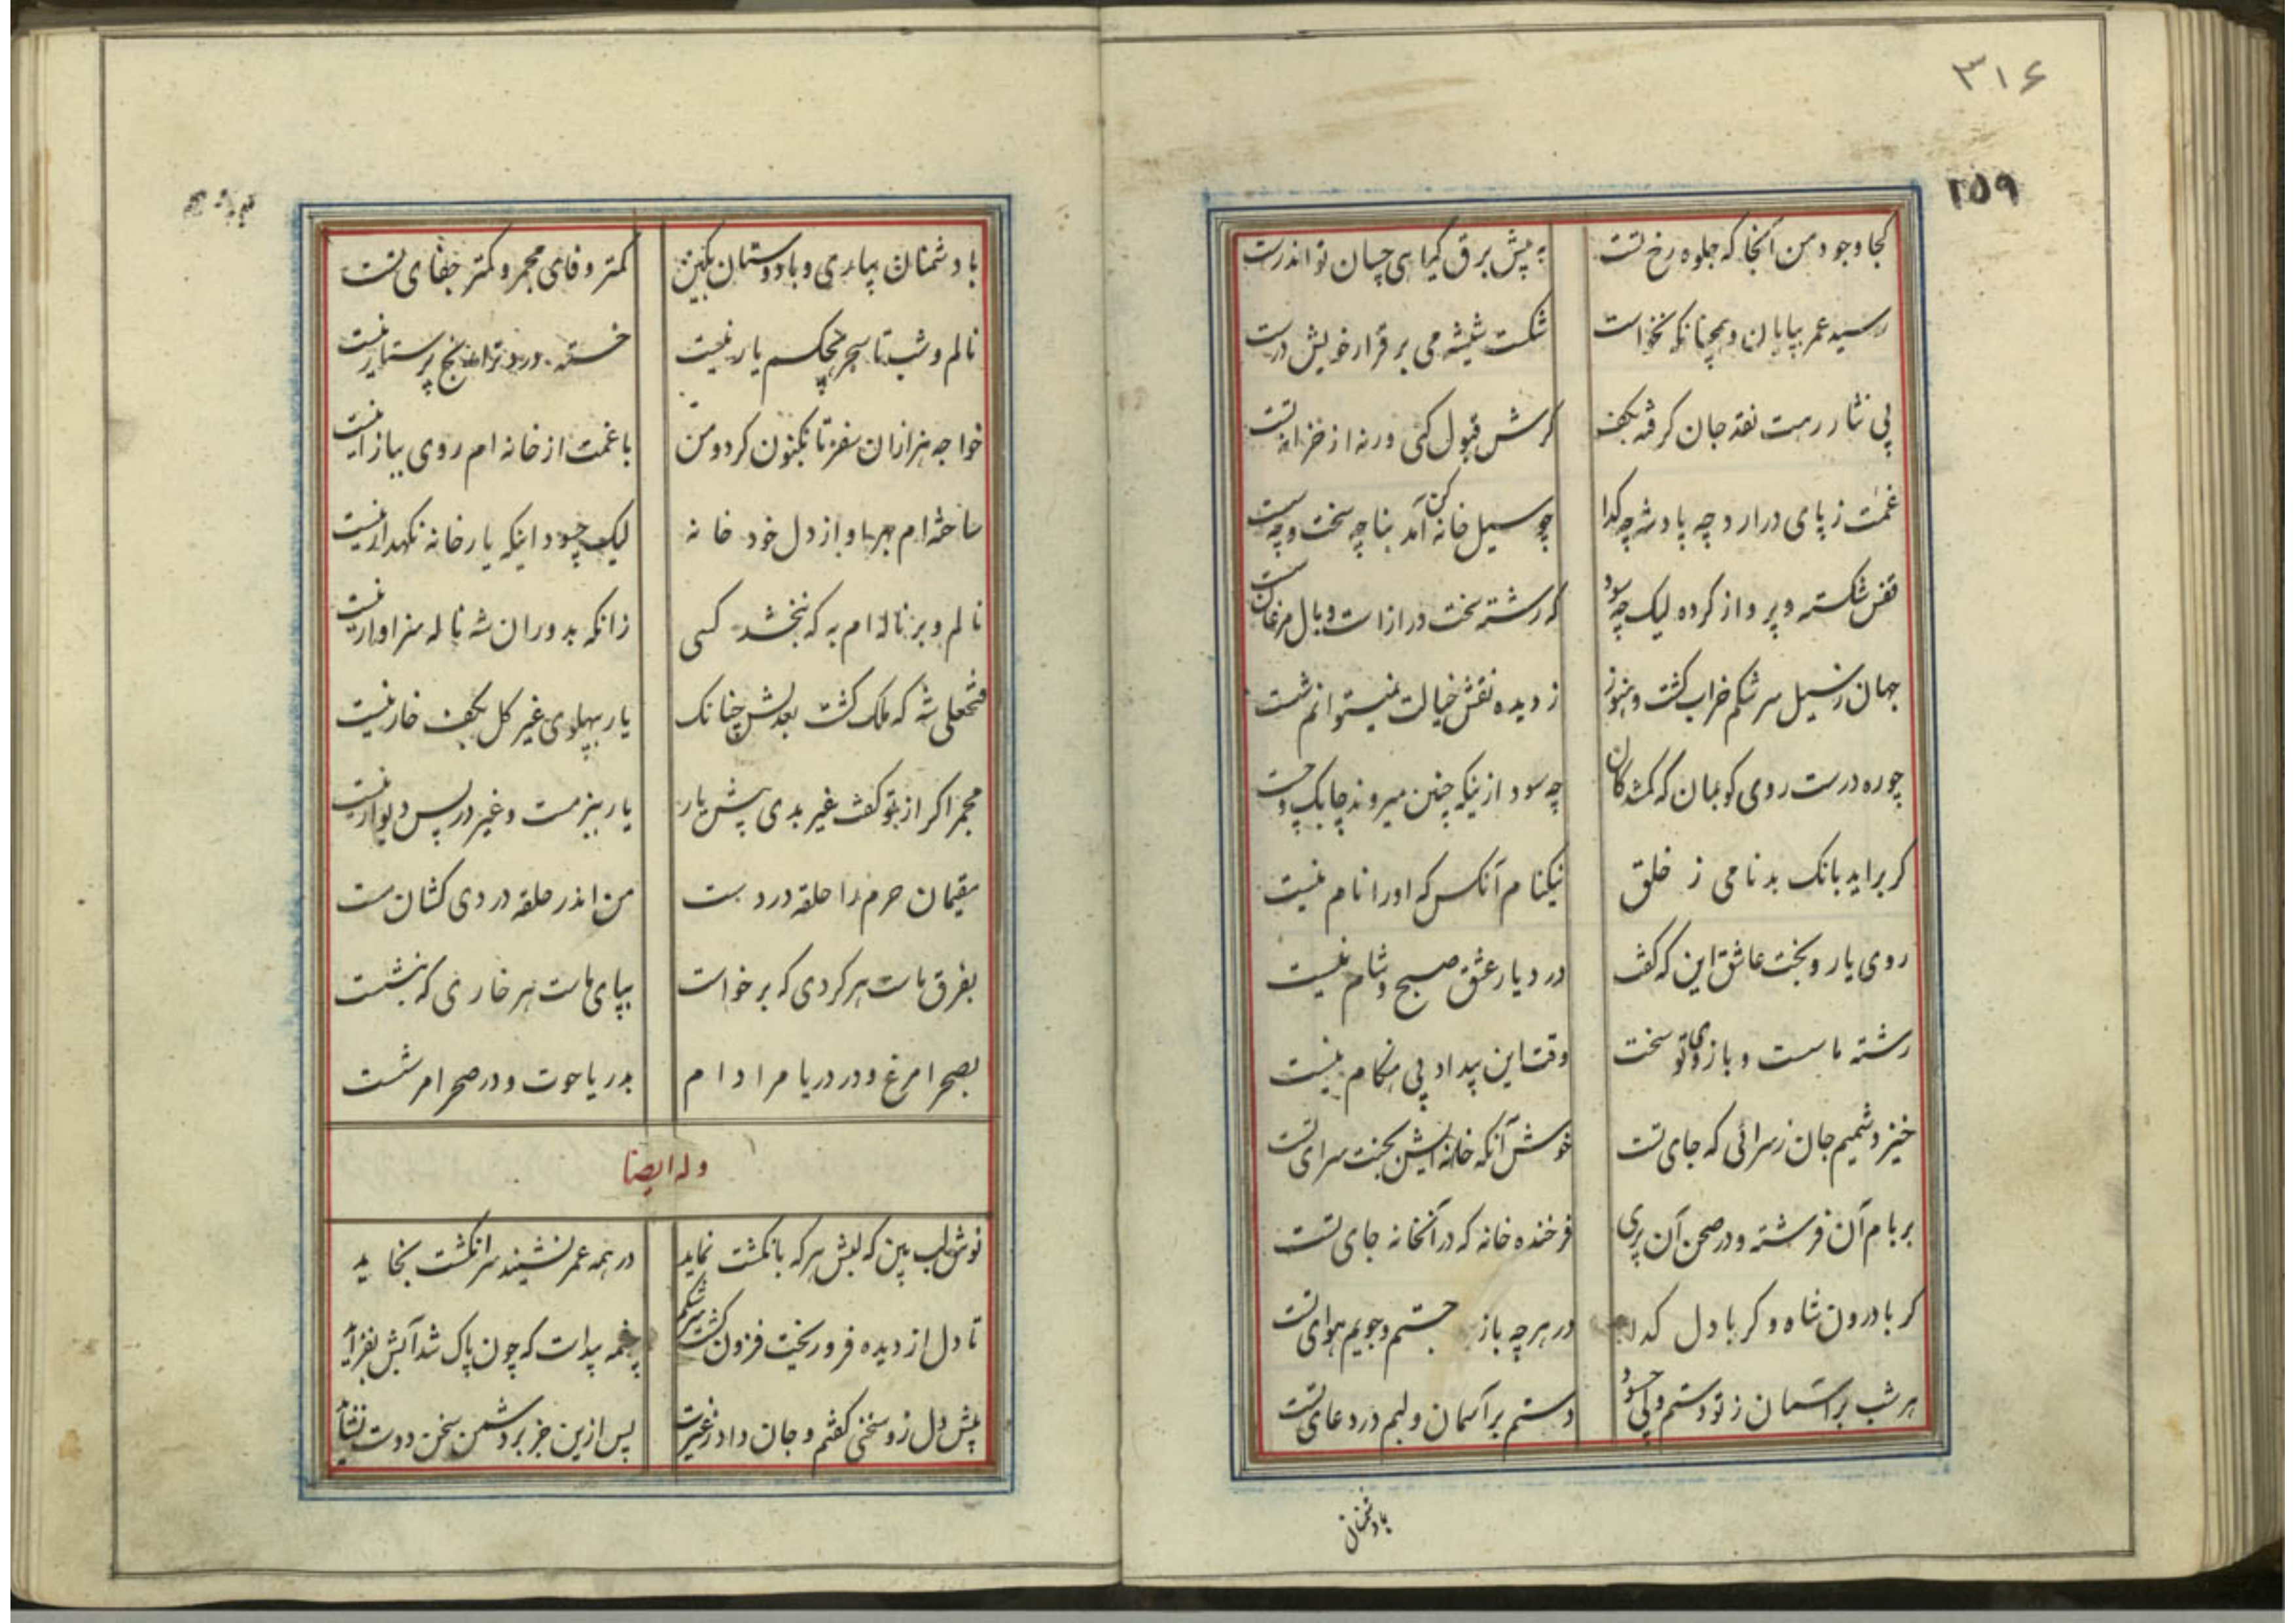 ۳۱۶
۲۵۹
کجا وجود من آنجا که جلوه رخ تست
به پیش برق گیاهی چسان تواند رست
رسید عمر بپایان و همچنانکه نخواست
شکست شیشه می بر قرار خویش درست
پی نثار رهت نقد جان گرفته بکف
گرش قبول کنی ورنه از خزانه تست
غمت ز پای درارد چه پادشه چه گدا
چو سیل خانه کن آمد بنا چه سخت و چه سست
قفس شکسته و پرواز کرده لیک چه سود
که رشته سخت درازست و بال مرغان سست
جهان ز سیل سرشکم خراب گشت و هنوز
ز دیده نقش خیالت نمیتوانم شست
چو ره درست روی گو بمان که گمشدگان
چه سود ازینکه چنین میروند چابک و چست
گر براید بانک بدنامی ز خلق
نیکنام آنکس که او را نام نیست
روی یار و بخت عاشق این که گفت
در دیار عشق صبح و شام نیست
رشته ما سست و بازوی تو سخت
وقت این بیداد بی هنگام نیست
خیزد شمیم جان ز سرائی که جای تست
خوش آنکه خانه ایش بجنت سرای تست
بر بام آن فرشته و در صحن آن پری
فرخنده خانه که در آنخانه جای تست
گر با درون شاه و گر با دل گدا
در هر چه باز جستم و جویم هوای تست
هر شب بر آستان ز تو دستم ولی چسود
دستم بر آسمان و لبم در دعای تست
بادشمنان
با دشمنان بیاری و با دوستان بکین
کمتر وفای مجمر و کمتر جفای تست
نالم و شب تا سحر هیچکسم یار نیست
خسته درد ترا هیچ پرستار نیست
خواجه هزاران سفر تا بکنون کرد و من
با غمت از خانه ام روی ببازار نیست
ساخته ام بهر او از دل خود خانه
لیک چسود اینکه یار خانه نگهدار نیست
نالم و بر ناله ام به که نبخشد کسی
زانکه بدوران شه ناله سزاوار نیست
فتحعلی شه که ملک گشت بعدلش چنانک
یار بپهلوی غیر گل بکف خار نیست
مجمر اگر از تو گفت غیر بدی پیش یار
یار ببزمست و غیر در پس دیوار نیست
مقیمان حرم را حلقه در دست
من اندر حلقه دردی کشان مست
بفرق ماست هر گردی که برخواست
بپای ماست هر خاری که بنشست
بصحرا مرغ و در دریا مرا دام
بدریا حوت و در صحرا مرا شست
وله ایضا
نوش لب بین که لبش هر که بانگشت نماید
در همه عمر نشیند سر انگشت بخاید
تا دل از دیده فرو ریخت فزون گشت سرشکم
چشمه پیداست که چون پاک شد آبش بفزاید
پیش دل زو سخنی گفتم و جان داد ز غیرت
پس ازین جز بر دشمن سخن دوست نشاید